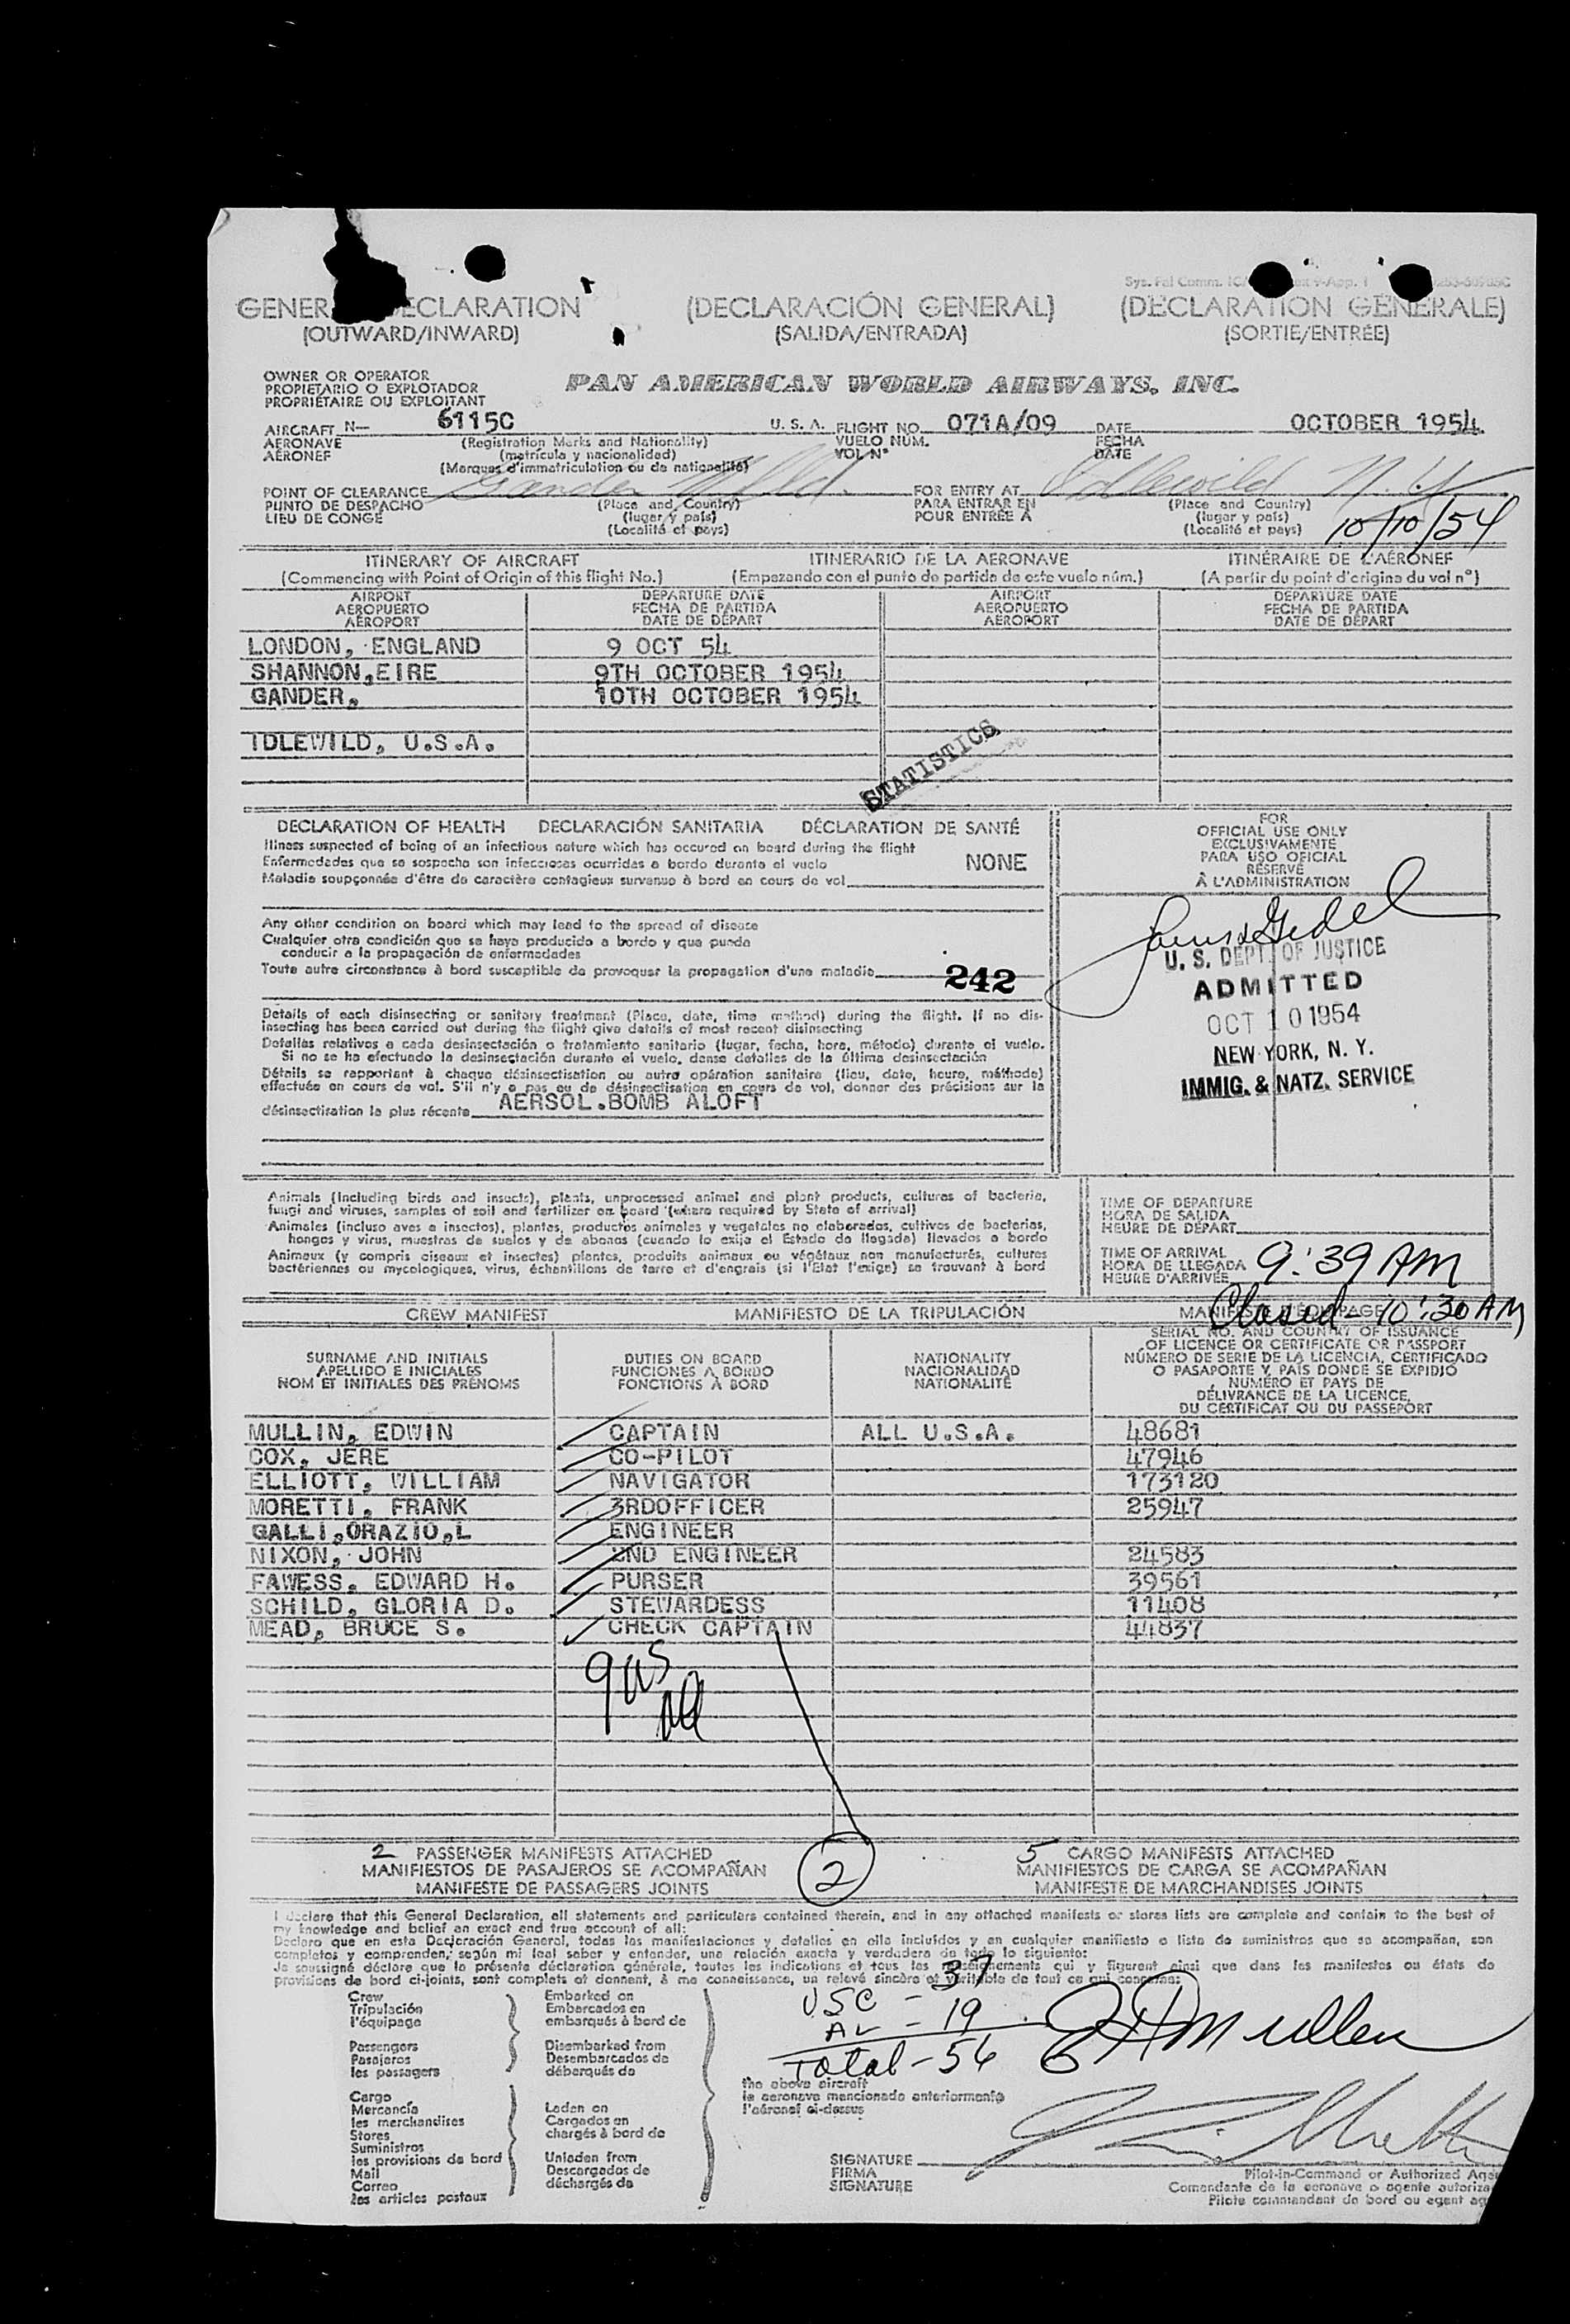 GENER DECLARATION (DECLARACIÓN GENERAL) (DÉCLARATION GÉNÉRALE)
(OUTWARD/INWARD) (SALIDA/ENTRADA) (SORTIE/ENTRÉE)
OWNER OR OPERATOR
PROPIETARIO O EXPLOTADOR
PROPRIÉTAIRE OU EXPLOITANT
PAN AMERICAN WORLD AIRWAYS, INC.
AIRCRAFT N— 6115C U. S. A. FLIGHT NO. 071A/09 DATE OCTOBER 1954
AERONAVE (Registration Marks and Nationality) VUELO NÚM. FECHA
AÉRONEF (matrícula y nacionalidad) VOL Nº DATE
(Marques d'immatriculation ou de nationalité)
POINT OF CLEARANCE Gander Nfld. FOR ENTRY AT Idlewild N.Y.
PUNTO DE DESPACHO (Place and Country) PARA ENTRAR EN (Place and Country)
LIEU DE CONGÉ (lugar y país) POUR ENTRÉE À (lugar y país)
(Localité et pays) (Localité et pays) 10/10/54
ITINERARY OF AIRCRAFT ITINERARIO DE LA AERONAVE ITINÉRAIRE DE L'AÉRONEF
(Commencing with Point of Origin of this flight No.) (Empezando con el punto de partida de este vuelo núm.) (A partir du point d'origine du vol nº)
AIRPORT DEPARTURE DATE AIRPORT DEPARTURE DATE
AEROPUERTO FECHA DE PARTIDA AEROPUERTO FECHA DE PARTIDA
AÉROPORT DATE DE DÉPART AÉROPORT DATE DE DÉPART
LONDON, ENGLAND 9 OCT 54
SHANNON,EIRE 9TH OCTOBER 1954
GANDER, 10TH OCTOBER 1954
IDLEWILD, U.S.A.
STATISTICS
DECLARATION OF HEALTH DECLARACIÓN SANITARIA DÉCLARATION DE SANTÉ
Illness suspected of being of an infectious nature which has occured on board during the flight
Enfermedades que se sospecha son infecciosas ocurridas a bordo durante el vuelo NONE
Maladie soupçonnée d'être de caractère contagieux survenue à bord en cours de vol
Any other condition on board which may lead to the spread of disease
Cualquier otra condición que se haya producido a bordo y que pueda
conducir a la propagación de enfermedades
Toute autre circonstance à bord susceptible de provoquer la propagation d'une maladie 242
Details of each disinsecting or sanitary treatment (Place, date, time method) during the flight. If no dis-
insecting has been carried out during the flight give details of most recent disinsecting
Detalles relativos a cada desinsectación o tratamiento sanitario (lugar, fecha, hora, método) durante el vuelo.
Si no se ha efectuado la desinsectación durante el vuelo, dense detalles de la última desinsectación
Détails se rapportant à chaque désinsectisation ou autre opération sanitaire (lieu, date, heure, méthode)
effectuée en cours de vol. S'il n'y a pas eu de désinsectisation en cours de vol, donner des précisions sur la
désinsectisation la plus récente AERSOL.BOMB ALOFT
FOR
OFFICIAL USE ONLY
EXCLUSIVAMENTE
PARA USO OFICIAL
RÉSERVÉ
À L'ADMINISTRATION
U. S. DEPT. OF JUSTICE
ADMITTED
OCT 10 1954
NEW YORK, N. Y.
IMMIG. & NATZ. SERVICE
Animals (Including birds and insects), plants, unprocessed animal and plant products, cultures of bacteria,
fungi and viruses, samples of soil and fertilizer on board (where required by State of arrival)
Animales (incluso aves e insectos), plantas, productos animales y vegetales no elaborados, cultivos de bacterias,
hongos y virus, muestras de suelos y de abonos (cuando lo exija el Estado de llegada) llevados a bordo
Animaux (y compris oiseaux et insectes) plantes, produits animaux ou végétaux non manufacturés, cultures
bactériennes ou mycologiques, virus, échantillons de terre et d'engrais (si l'État l'exige) se trouvant à bord
TIME OF DEPARTURE
HORA DE SALIDA
HEURE DE DÉPART
TIME OF ARRIVAL
HORA DE LLEGADA 9:39 AM
HEURE D'ARRIVÉE
Closed - 10:30 AM
CREW MANIFEST MANIFIESTO DE LA TRIPULACIÓN MANIFESTE D'ÉQUIPAGE
SURNAME AND INITIALS DUTIES ON BOARD NATIONALITY
APELLIDO E INICIALES FUNCIONES A BORDO NACIONALIDAD
NOM ET INITIALES DES PRÉNOMS FONCTIONS À BORD NATIONALITÉ
SERIAL NO. AND COUNTRY OF ISSUANCE
OF LICENCE OR CERTIFICATE OR PASSPORT
NÚMERO DE SERIE DE LA LICENCIA, CERTIFICADO
O PASAPORTE Y PAÍS DONDE SE EXPIDIÓ
NUMÉRO ET PAYS DE
DÉLIVRANCE DE LA LICENCE,
DU CERTIFICAT OU DU PASSEPORT
MULLIN, EDWIN CAPTAIN ALL U.S.A. 48681
COX, JERE CO-PILOT 47946
ELLIOTT, WILLIAM NAVIGATOR 173120
MORETTI, FRANK 3RDOFFICER 25947
GALLI,ORAZIO,L ENGINEER
NIXON, JOHN 2ND ENGINEER 24583
FAWESS, EDWARD H. PURSER 39561
SCHILD, GLORIA D. STEWARDESS 11408
MEAD, BRUCE S. CHECK CAPTAIN 44837
2 PASSENGER MANIFESTS ATTACHED 5 CARGO MANIFESTS ATTACHED
MANIFIESTOS DE PASAJEROS SE ACOMPAÑAN 2 MANIFIESTOS DE CARGA SE ACOMPAÑAN
MANIFESTE DE PASSAGERS JOINTS MANIFESTE DE MARCHANDISES JOINTS
I declare that this General Declaration, all statements and particulars contained therein, and in any attached manifests or stores lists are complete and contain to the best of
my knowledge and belief an exact and true account of all:
Declaro que en esta Declaración General, todas las manifestaciones y detalles en ella incluídos y en cualquier manifiesto o lista de suministros que se acompañan, son
completos y comprenden, según mi leal saber y entender, una relación exacta y verdadera de todo lo siguiente:
Je soussigné déclare que la présente déclaration générale, toutes les indications et tous les renseignements qui y figurent ainsi que dans les manifestes ou états de
provisions de bord ci-joints, sont complets et donnent, à ma connaissance, un relevé sincère et véritable de tout ce qui concerne:
Crew Embarked on
Tripulación Embarcados en
l'équipage embarqués à bord de
USC - 37
AL - 19
Total - 56
Passengers Disembarked from
Pasajeros Desembarcados de
les passagers débarqués de
the above aircraft
la aeronave mencionada anteriormente
l'aéronef ci-dessus
Cargo
Mercancía Laden on
les marchandises Cargados en
Stores chargés à bord de
Suministros
les provisions de bord Unladen from
Mail Descargados de
Correo déchargés de
les articles postaux
SIGNATURE
FIRMA
SIGNATURE
Pilot-in-Command or Authorized Age
Comandante de la aeronave o agente autoriza
Pilote commandant de bord ou agent ag